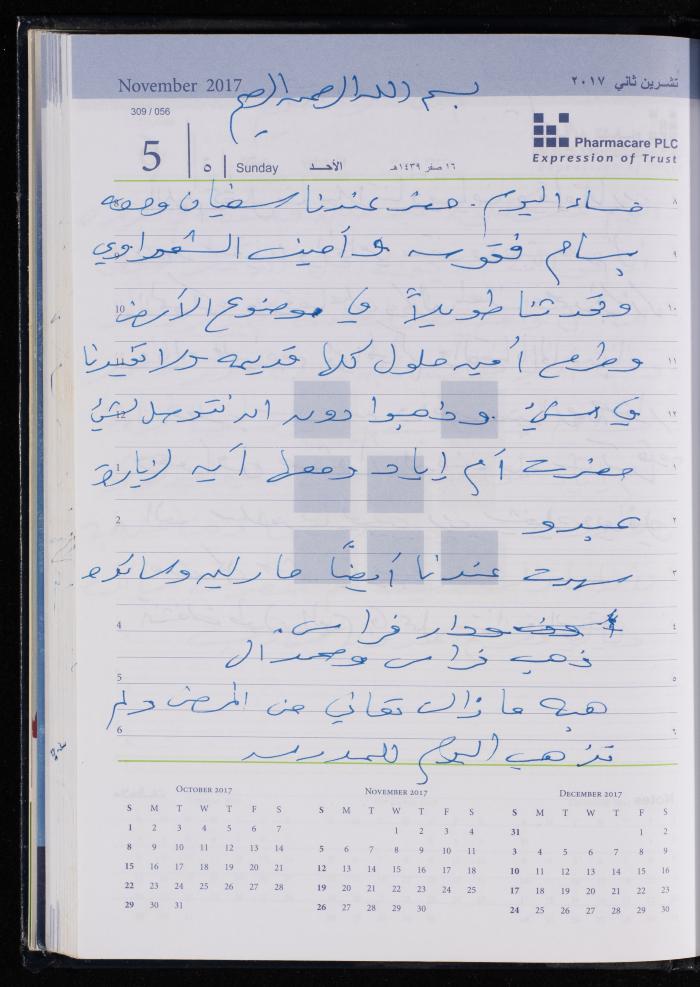 November 2017
تشرين ثاني ٢٠١٧
بسم الله الرحمن الرحيم
309 / 056
5
٥
Sunday
الأحــد
١٦ صفر ١٤٣٩هـ
Pharmacare PLC
Expression of Trust
مساء اليوم . حضر عندنا سفيان ومعه
بسام فقوسه وأمين الشعراوي
وتحدثنا طويلاً في موضوع الأرض
وطرح أمين حلول كلها قديمه ولا تفيدنا
في شيئ . وذهبوا دون ان نتوصل لشيئ
حضرت أم إياد ومعها آيه لزيارة
عبدو
سهرت عندنا أيضًا مارلين
ودار فراس .
ذهب فراس
هبه ما زالت تعاني من المرض ولم
تذهب اليوم للمدرسه
8
9
10
11
12
1
2
3
4
5
6
٨
٩
١٠
١١
١٢
١
٢
٣
٤
٥
٦
October 2017
S M T W T F S
1 2 3 4 5 6 7
8 9 10 11 12 13 14
15 16 17 18 19 20 21
22 23 24 25 26 27 28
29 30 31
November 2017
S M T W T F S
1 2 3 4
5 6 7 8 9 10 11
12 13 14 15 16 17 18
19 20 21 22 23 24 25
26 27 28 29 30
December 2017
S M T W T F S
31 1 2
3 4 5 6 7 8 9
10 11 12 13 14 15 16
17 18 19 20 21 22 23
24 25 26 27 28 29 30